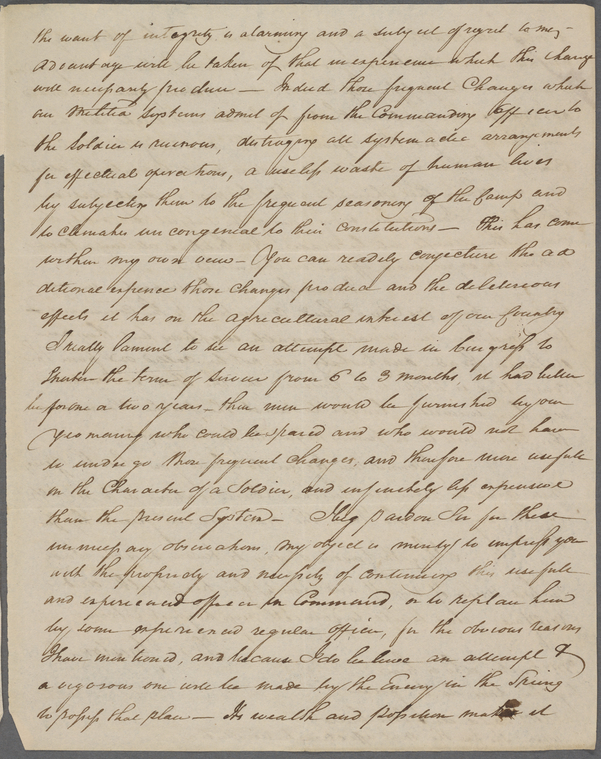 the want of integrity is alarming and a subject of regret to me,
advantage will be taken of that inexperience which this change
will necessarily produce — Indeed those frequent Changes which
our Militia systems admit of from the Commanding Officer to
the Soldier is ruinous, distroying all systematic arrangements
for effectual operations, a useless waste of human lives
by subjecting them to the frequent seasoning of the Camp and
to climate uncongenial to their constitutions — This has come
within my own view — You can readily conjecture the ad
ditional expence those changes produce and the deleterious
effects it has on the agricultural interest of our Country
I really lament to see an attempt made in Congress to
Shorten the term of service from 6 to 3 months, it had better
be for one or two years — then men would be furnished by our
Yeomanry who could be spared and who would not have
to undergo those frequent changes, and therefore more usefull
in the Character of a Soldier, and infinitely less expensive
than the present System — I beg pardon Sir for these
unnecessary observations, my object is merely to impress you
with the propriety and necessity of continuing this usefull
and experienced officer in Command, or to replace him
by some experienced regular officer, for the obvious reasons
I have mentioned, and because I do believe an attempt &
a vigorous one will be made by the Enemy in the Spring
to possess that place — Its wealth and position makes it